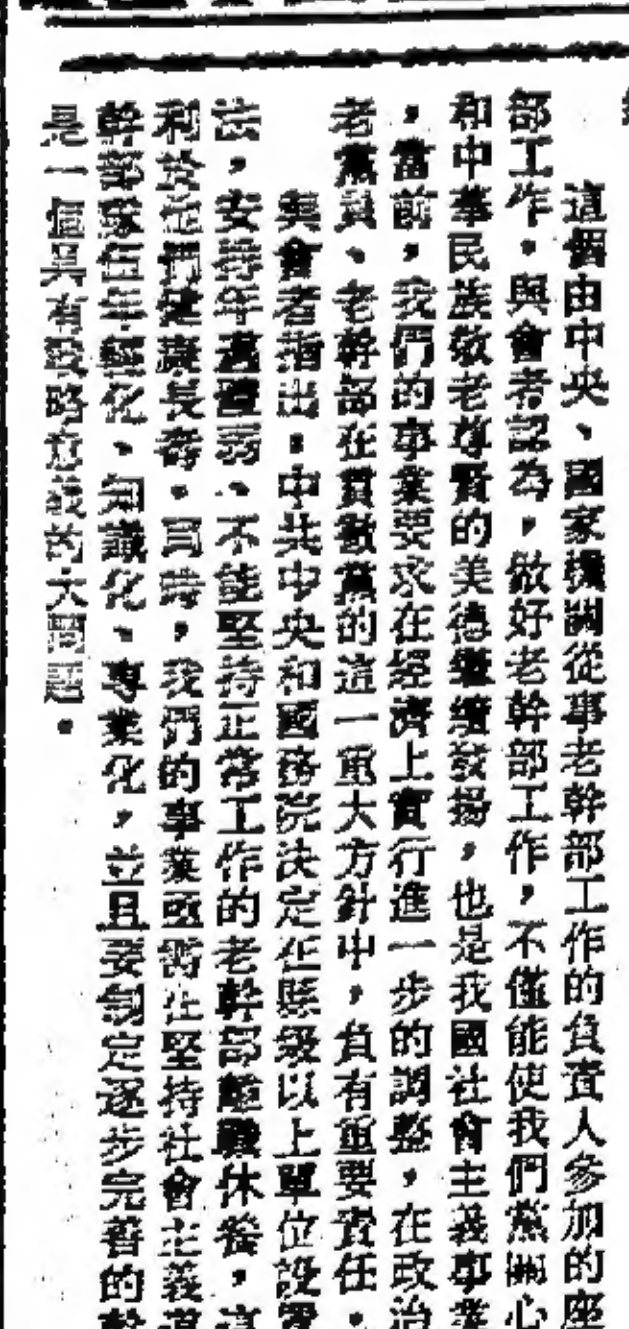 這個由中央、國家機關從事老幹部工作的負責人參加的座
部工作。與會者認為，做好老幹部工作，不僅能使我們黨關心
和中華民族敬老尊賢的美德繼續發揚，也是我國社會主義事業
，當前，我們的事業要求在經濟上實行進一步的調整，在政治
老黨員、老幹部在貫徹黨的這一重大方針中，負有重要責任。
與會者指出：中共中央和國務院決定在縣級以上單位設置
法，安排年邁體弱、不能堅持正常工作的老幹部離職休養，這
利於他們健康長壽。同時，我們的事業亟需在堅持社會主義道
幹部隊伍年輕化、知識化、專業化，並且要制定逐步完善的幹
是一個具有戰略意義的大問題。